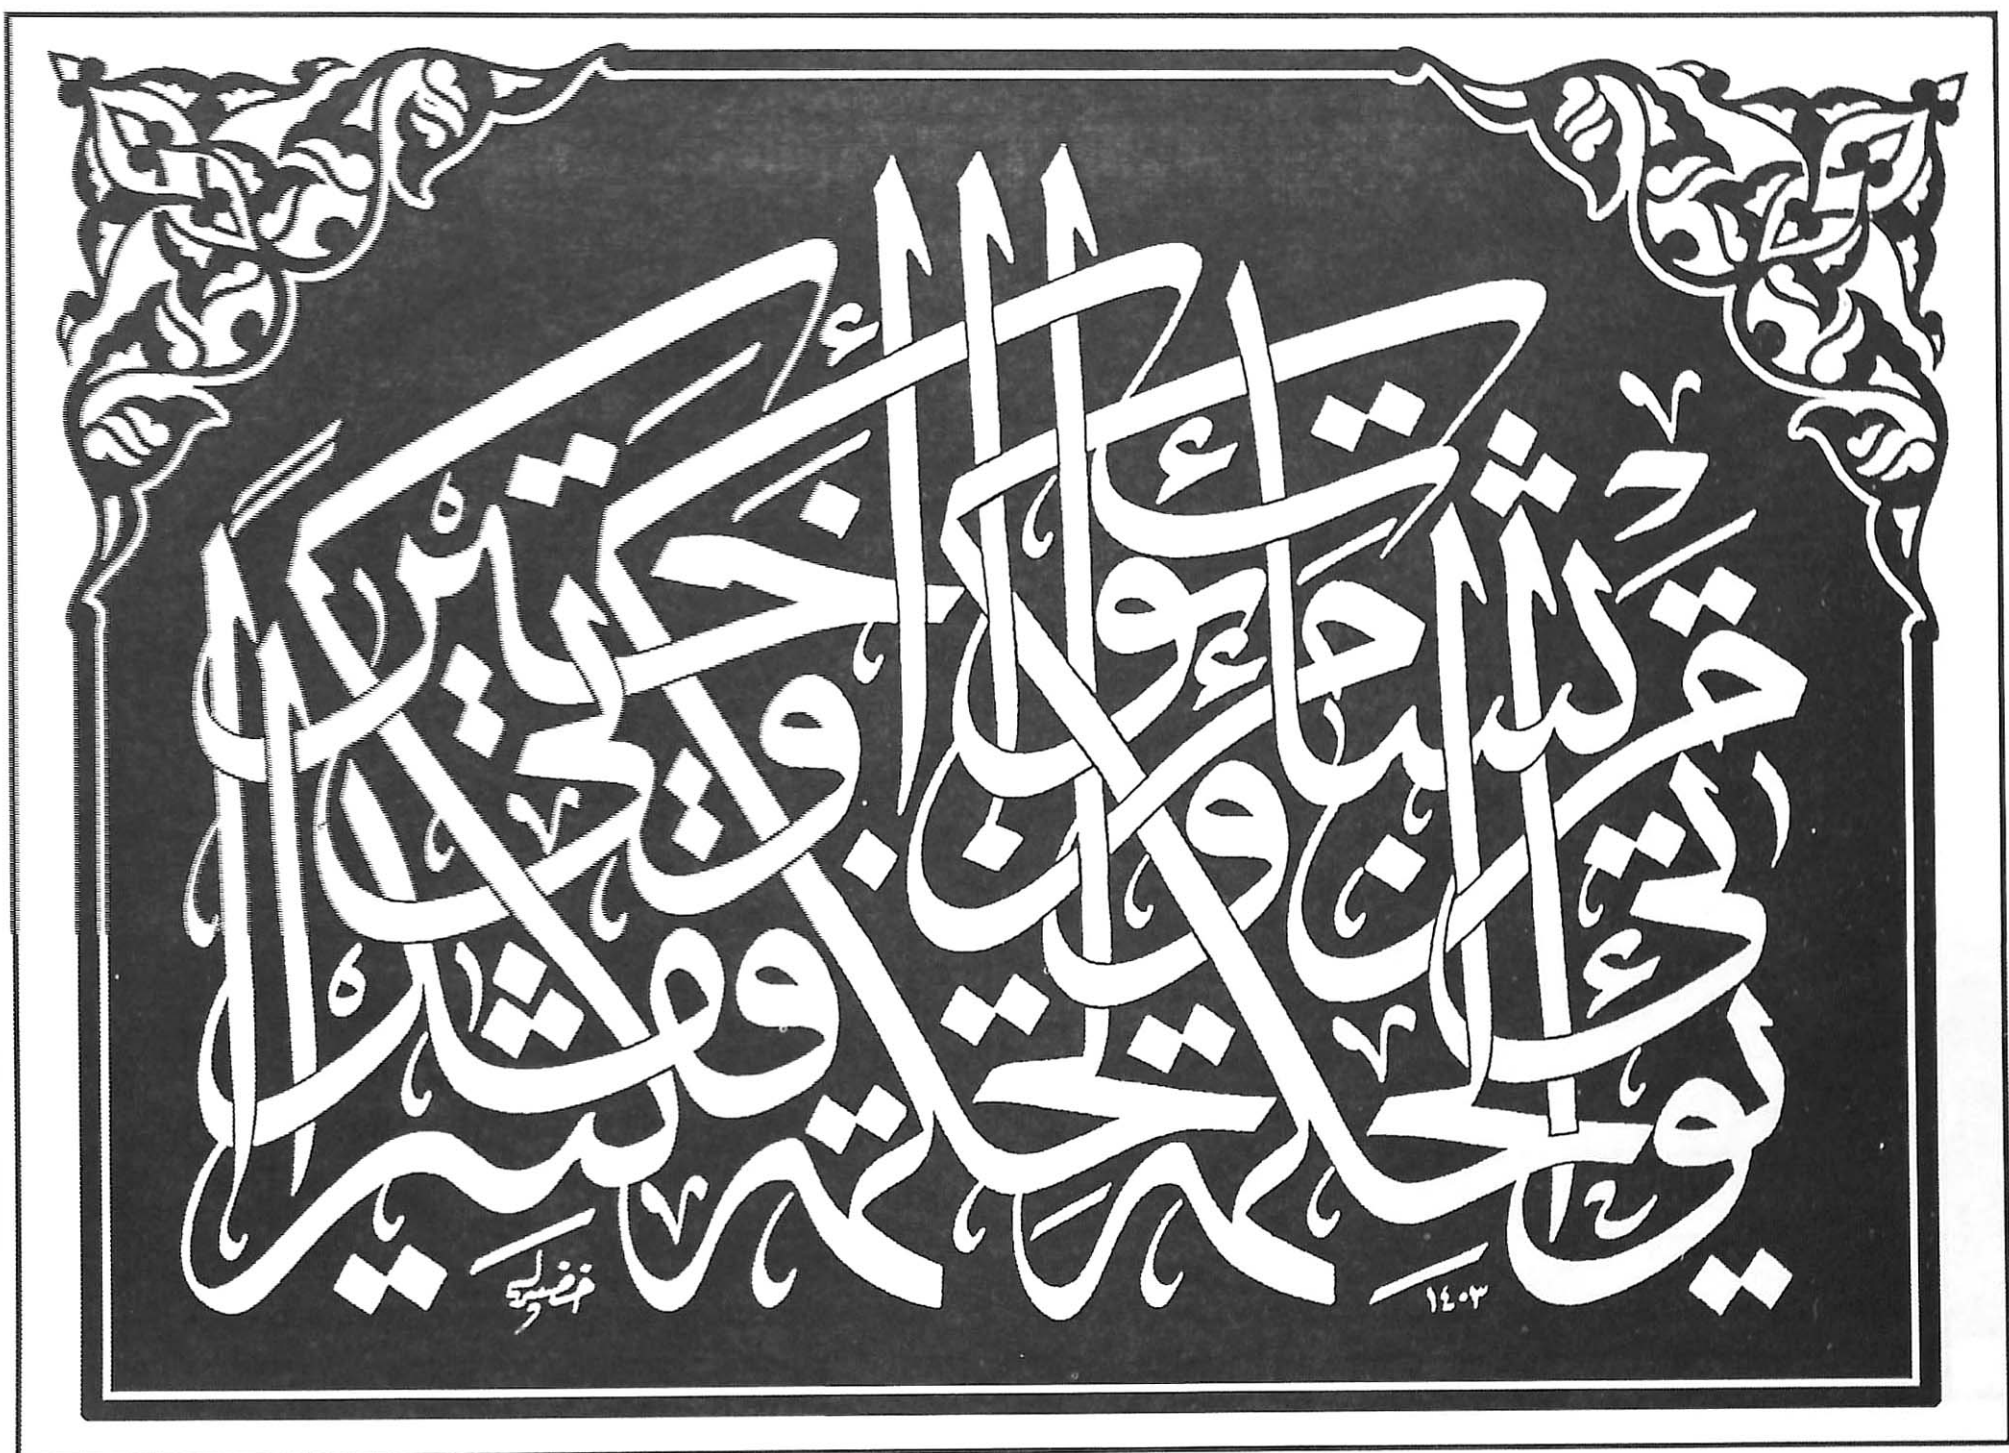 يؤتي الحكمة من يشاء ومن يؤت الحكمة فقد أوتي خيراً كثيراً
١٤٠٣